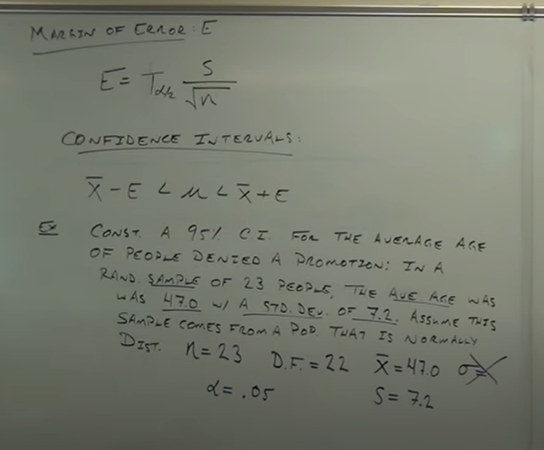 MARGIN OF ERROR: E
E = Tα/2 S/√n
CONFIDENCE INTERVALS:
X̄ - E < μ < X̄ + E
EX CONST. A 95% C.I. FOR THE AVERAGE AGE
OF PEOPLE DENIED A PROMOTION: IN A
RAND SAMPLE OF 23 PEOPLE, THE AVE AGE WAS
WAS 47.0 W/ A STD. DEV. OF 7.2. ASSUME THIS
SAMPLE COMES FROM A POP. THAT IS NORMALLY
DIST. n = 23 D.F. = 22 X̄ = 47.0 σ =
α = .05 S = 7.2